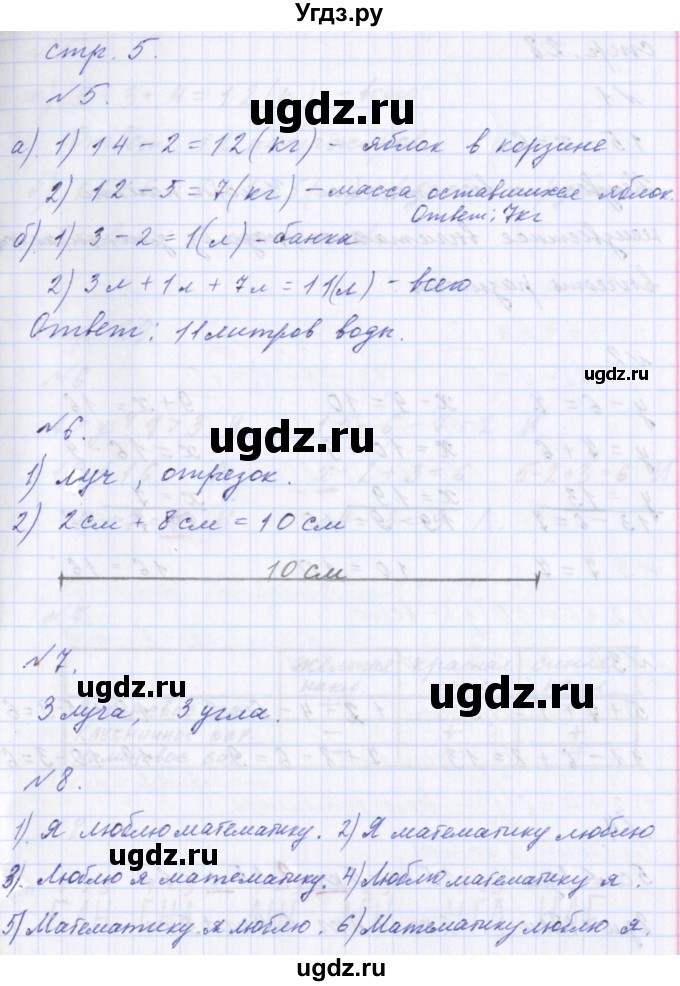 Угдз.ру
стр. 5.
№5.
а) 1) 14 - 2 = 12 (кг) - яблок в корзине
2) 12 - 5 = 7 (кг) - масса оставшихся яблок.
Ответ: 7кг
б) 1) 3 - 2 = 1 (л) - банка
2) 3л + 1л + 7л = 11 (л) - всего
Ответ: 11 литров воды.
№6.
1) луч, отрезок.
2) 2см + 8см = 10см
10 см
№7.
3 луча, 3 угла.
№8.
1). Я люблю математику. 2) Я математику люблю
3). Люблю я математику. 4) Люблю математику я.
5) Математику я люблю. 6) Математику люблю я.
ugdz.ru
ugdz.ru
ugdz.ru
ugdz.ru
ugdz.ru
ugdz.ru
ugdz.ru
ugdz.ru
ugdz.ru